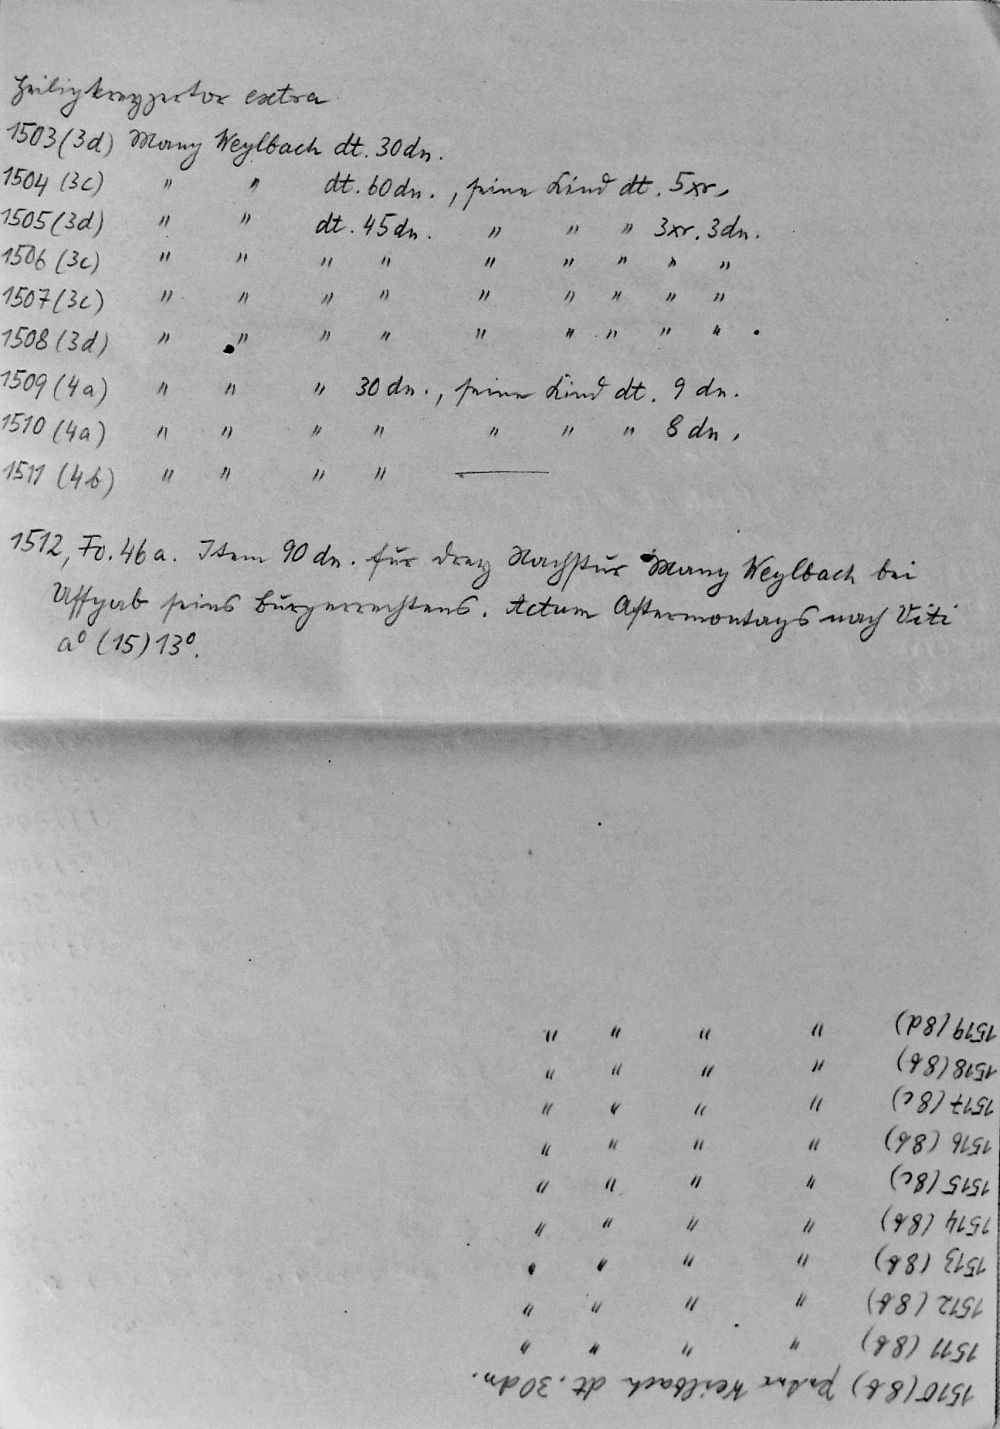 Heiligkreyzertor extra
1503 (3d) Many Weylbach dt. 30 dn.
1504 (3c) " " dt. 60 dn., seine Kind dt. 5 xr,
1505 (3d) " " dt. 45 dn. " " " 3 xr. 3 dn.
1506 (3c) " " " " " " " " "
1507 (3c) " " " " " " " " "
1508 (3d) " " " " " " " " " .
1509 (4a) " " " 30 dn., seine Kind dt. 9 dn.
1510 (4a) " " " " " " " 8 dn,
1511 (4b) " " " " —
1512, Fo. 46a. Item 90 dn. für drey Nachstur Many Weylbach bei
Uffgab seins burgerrechtens. Actum Aftermontags nach Viti
a° (15)13°.
1510 (8b) peter Weilbach dt. 30 dn.
1511 (8b) " " " "
1512 (8b) " " " "
1513 (8b) " " " "
1514 (8b) " " " "
1515 (8c) " " " "
1516 (8b) " " " "
1517 (8c) " " " "
1518 (8b) " " " "
1519 (8d) " " " "